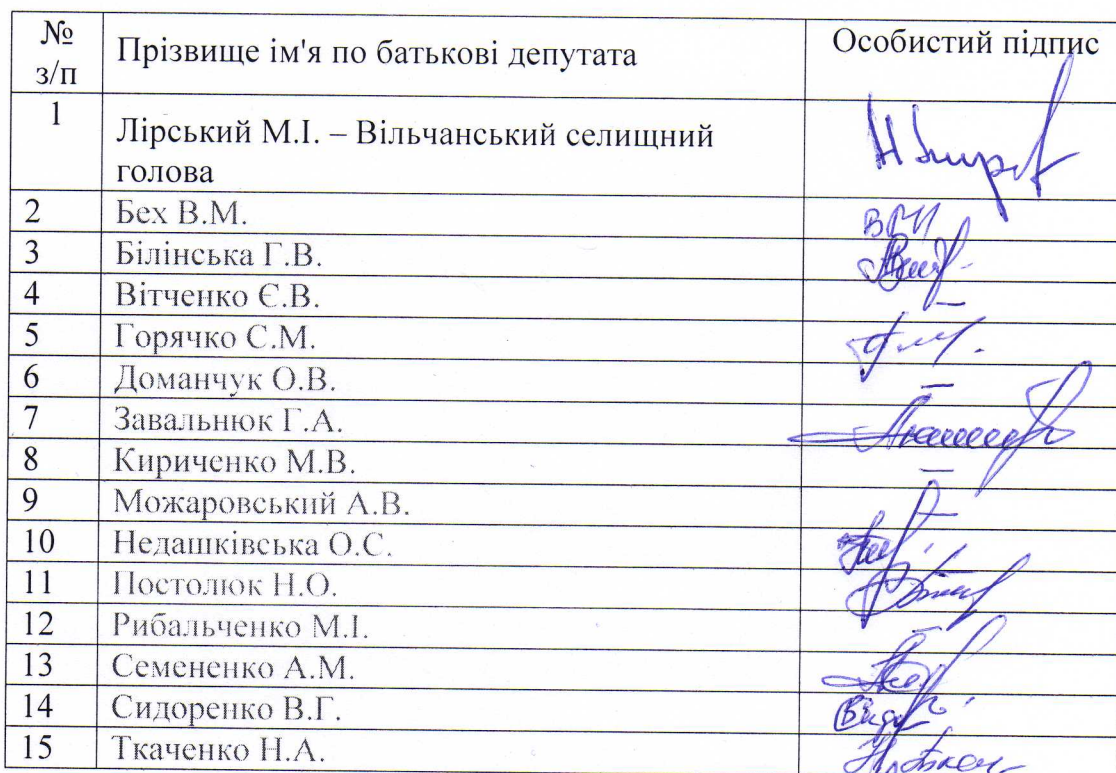 № з/п Прізвище ім'я по батькові депутата Особистий підпис
1 Лірський М.І. – Вільчанський селищний
голова
2 Бех В.М.
3 Білінська Г.В.
4 Вітченко Є.В. –
5 Горячко С.М.
6 Доманчук О.В. –
7 Завальнюк Г.А.
8 Кириченко М.В. –
9 Можаровський А.В. –
10 Недашківська О.С.
11 Постолюк Н.О.
12 Рибальченко М.І. –
13 Семененко А.М.
14 Сидоренко В.Г.
15 Ткаченко Н.А.